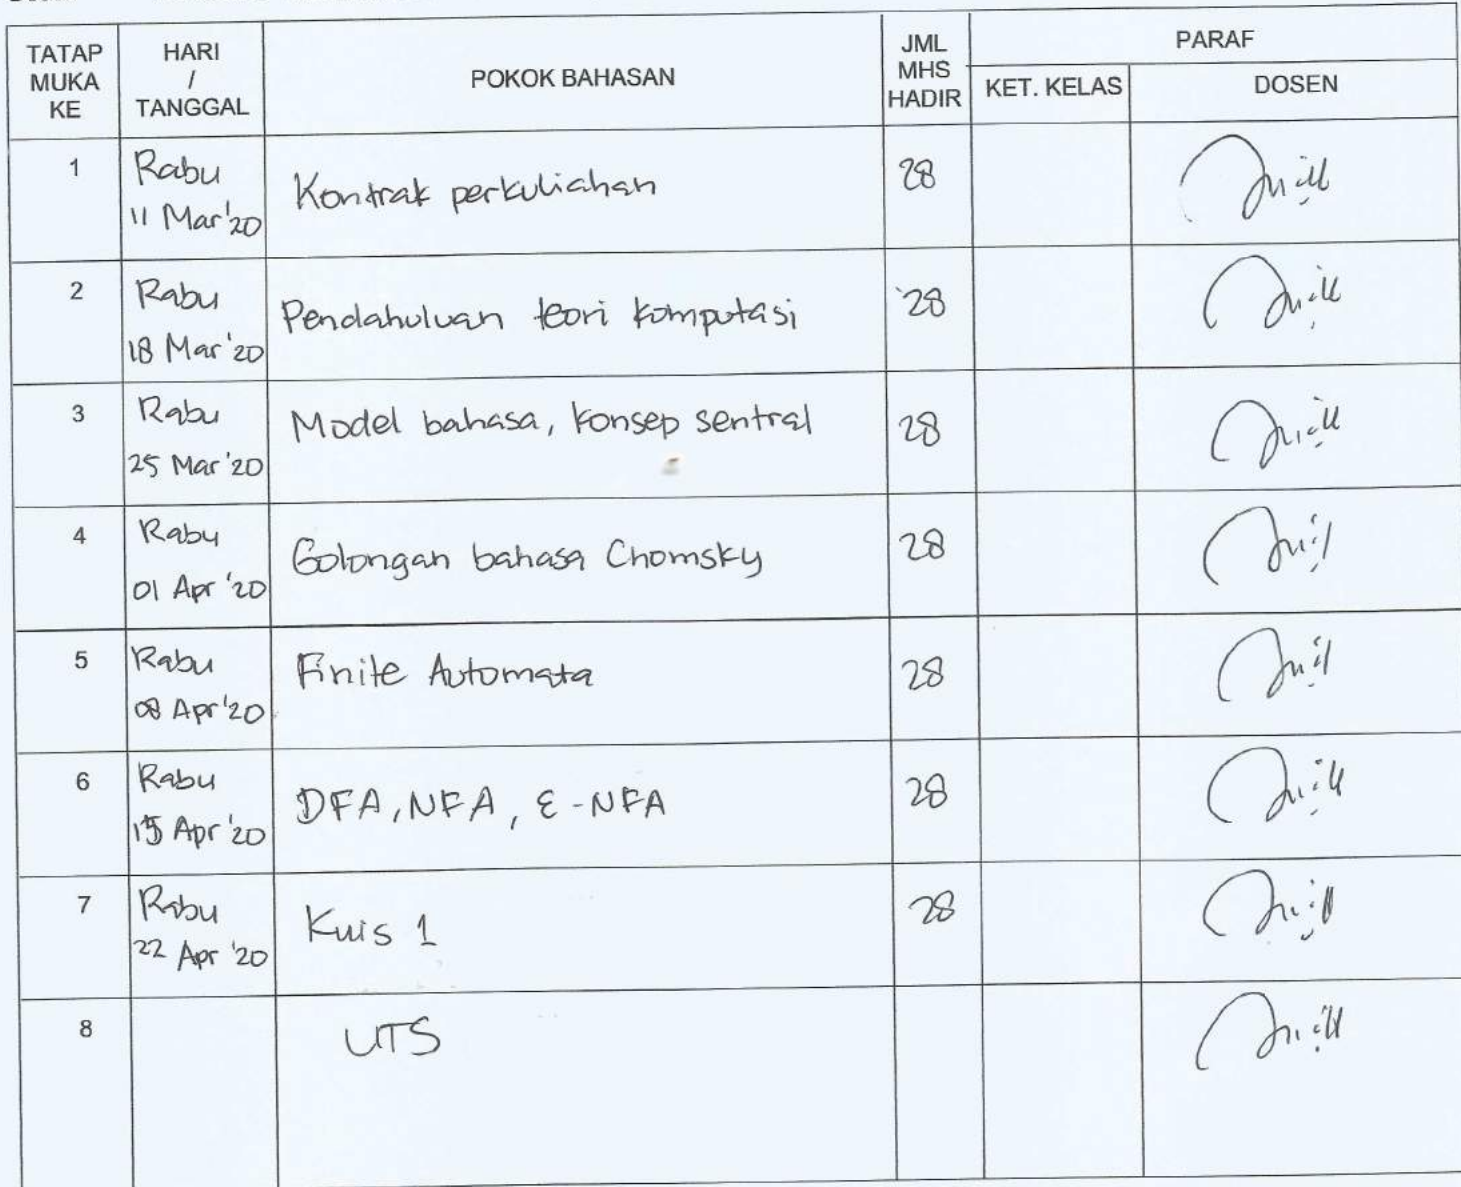 TATAP MUKA KE
HARI / TANGGAL
POKOK BAHASAN
JML MHS HADIR
PARAF
KET. KELAS
DOSEN
1
Rabu
11 Mar '20
Kontrak perkuliahan
28
2
Rabu
18 Mar '20
Pendahuluan teori komputasi
28
3
Rabu
25 Mar '20
Model bahasa, konsep sentral
28
4
Rabu
01 Apr '20
Golongan bahasa Chomsky
28
5
Rabu
08 Apr '20
Finite Automata
28
6
Rabu
15 Apr '20
DFA, NFA, ε-NFA
28
7
Rabu
22 Apr '20
Kuis 1
28
8
UTS